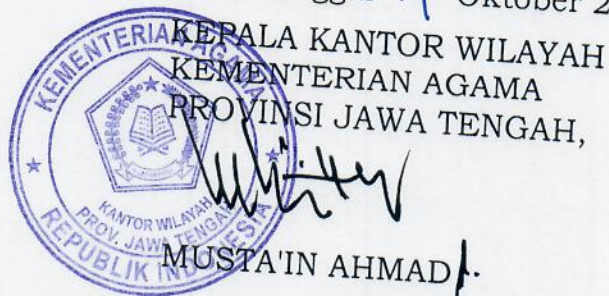 Oktober 2
KEPALA KANTOR WILAYAH
KEMENTERIAN AGAMA
PROVINSI JAWA TENGAH,
KEMENTERIAN AGAMA
KANTOR WILAYAH
PROV. JAWA TENGAH
REPUBLIK INDONESIA
MUSTA'IN AHMAD